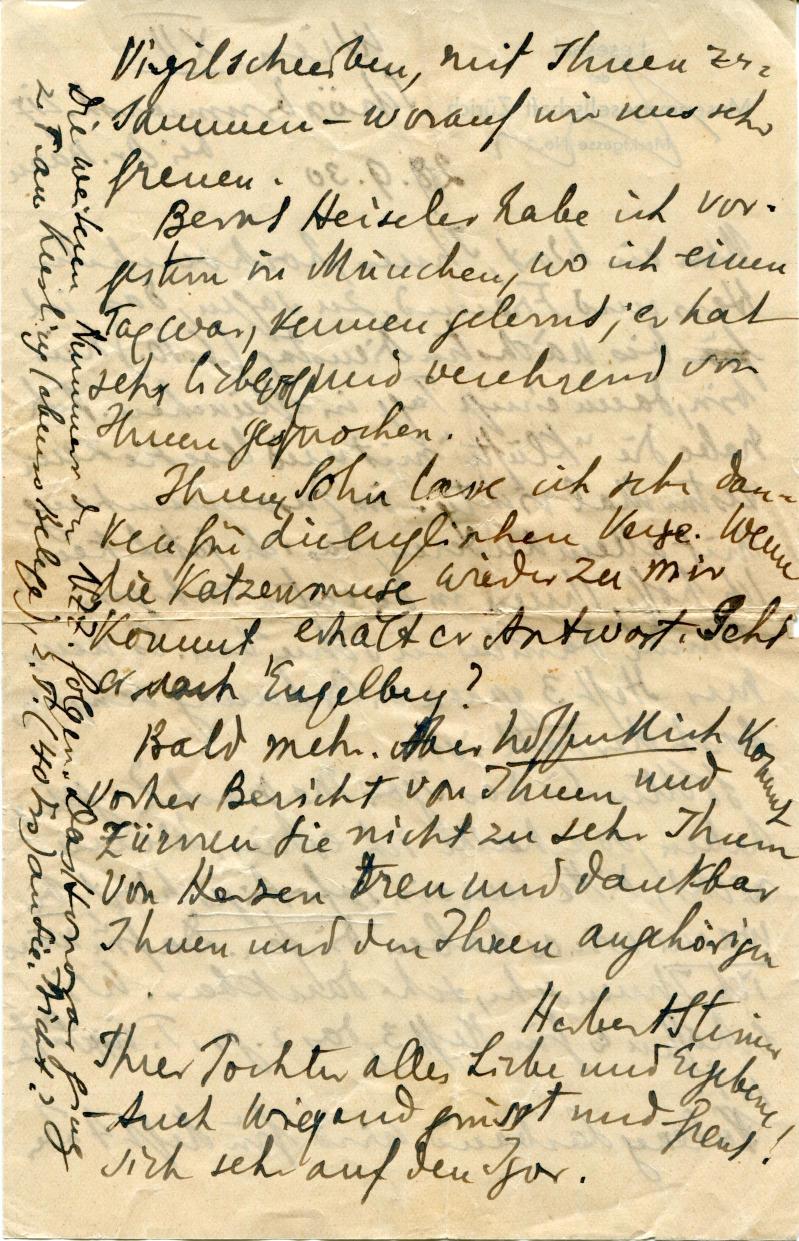 Vigilschreiben, mit Ihnen zu-
sammen – worauf wir uns sehr
freuen.
Bernt Heiseler habe ich vor-
gestern in München, wo ich einen
Tag war, kennen gelernt; er hat
sehr lieb und verehrend von
Ihnen gesprochen.
Ihrem Sohn lasse ich sehr dan-
ken für die englischen Verse. Wenn
die Katzenmuse wieder zu mir
kommt, erhält er Antwort. Geht
er nach Engelberg?
Bald mehr. Aber hoffentlich kommt
vorher Bericht von Ihnen und
zürnen Sie nicht zu sehr Ihrem
von Herzen treu und dankbar
Ihnen und den Ihren angehörigen
Herbert Steiner
Ihrer Tochter alles Liebe und Ergebene!
– Auch Wiegand grüsst und freut
sich sehr auf den Igor.
Die weiteren Nummern der NZZ. folgen. Das Honorar ging
z. T. an Kiesling (ebenso Belege), z. T. (40 Frs) an Sie. Nicht?
28.9.30